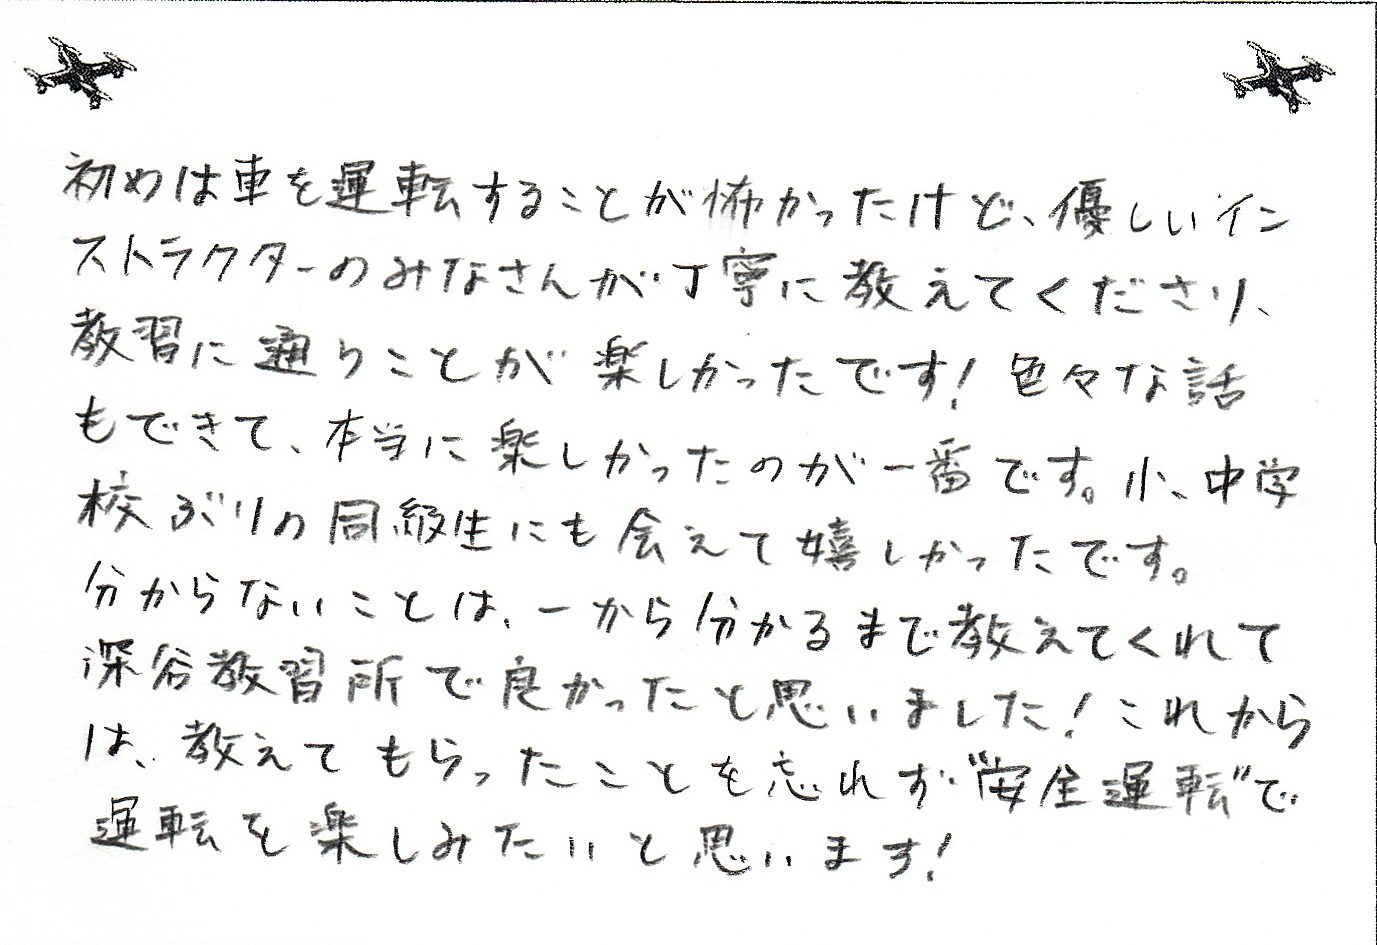 初めは車を運転することが怖かったけど、優しいイン
ストラクターのみなさんが丁寧に教えてくださり、
教習に通うことが楽しかったです!色々な話
もできて、本当に楽しかったのが一番です。小、中学
校ぶりの同級生にも会えて嬉しかったです。
分からないことは、一から分かるまで教えてくれて
深谷教習所で良かったと思いました!これから
は、教えてもらったことを忘れず"安全運転"で
運転を楽しみたいと思います!